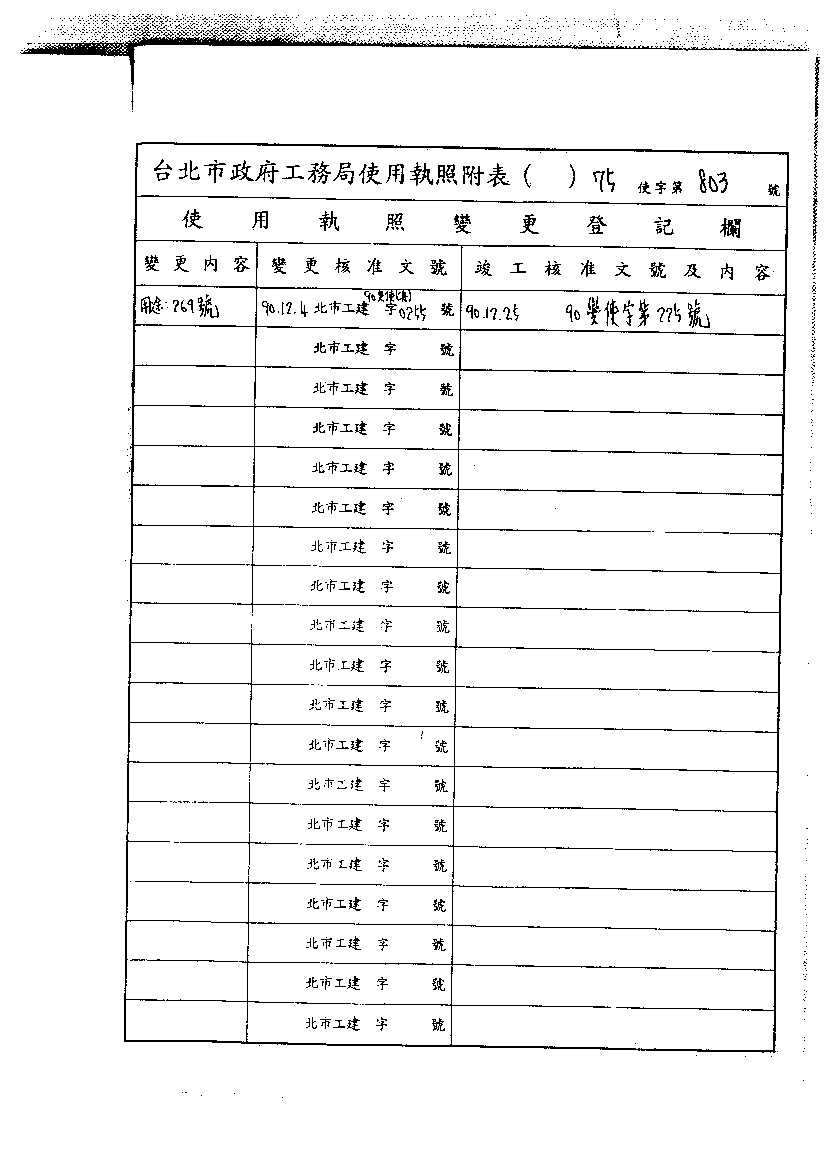 台北市政府工務局使用執照附表（ ）75 使字第 803 號
使用執照變更登記欄
變更內容 變更核准文號 竣工核准文號及內容
用途:269號 90.12.4 北市工建 90變使(准) 字0255 號 90.12.25 90變使字第225號
北市工建 字 號
北市工建 字 號
北市工建 字 號
北市工建 字 號
北市工建 字 號
北市工建 字 號
北市工建 字 號
北市工建 字 號
北市工建 字 號
北市工建 字 號
北市工建 字 號
北市工建 字 號
北市工建 字 號
北市工建 字 號
北市工建 字 號
北市工建 字 號
北市工建 字 號
北市工建 字 號